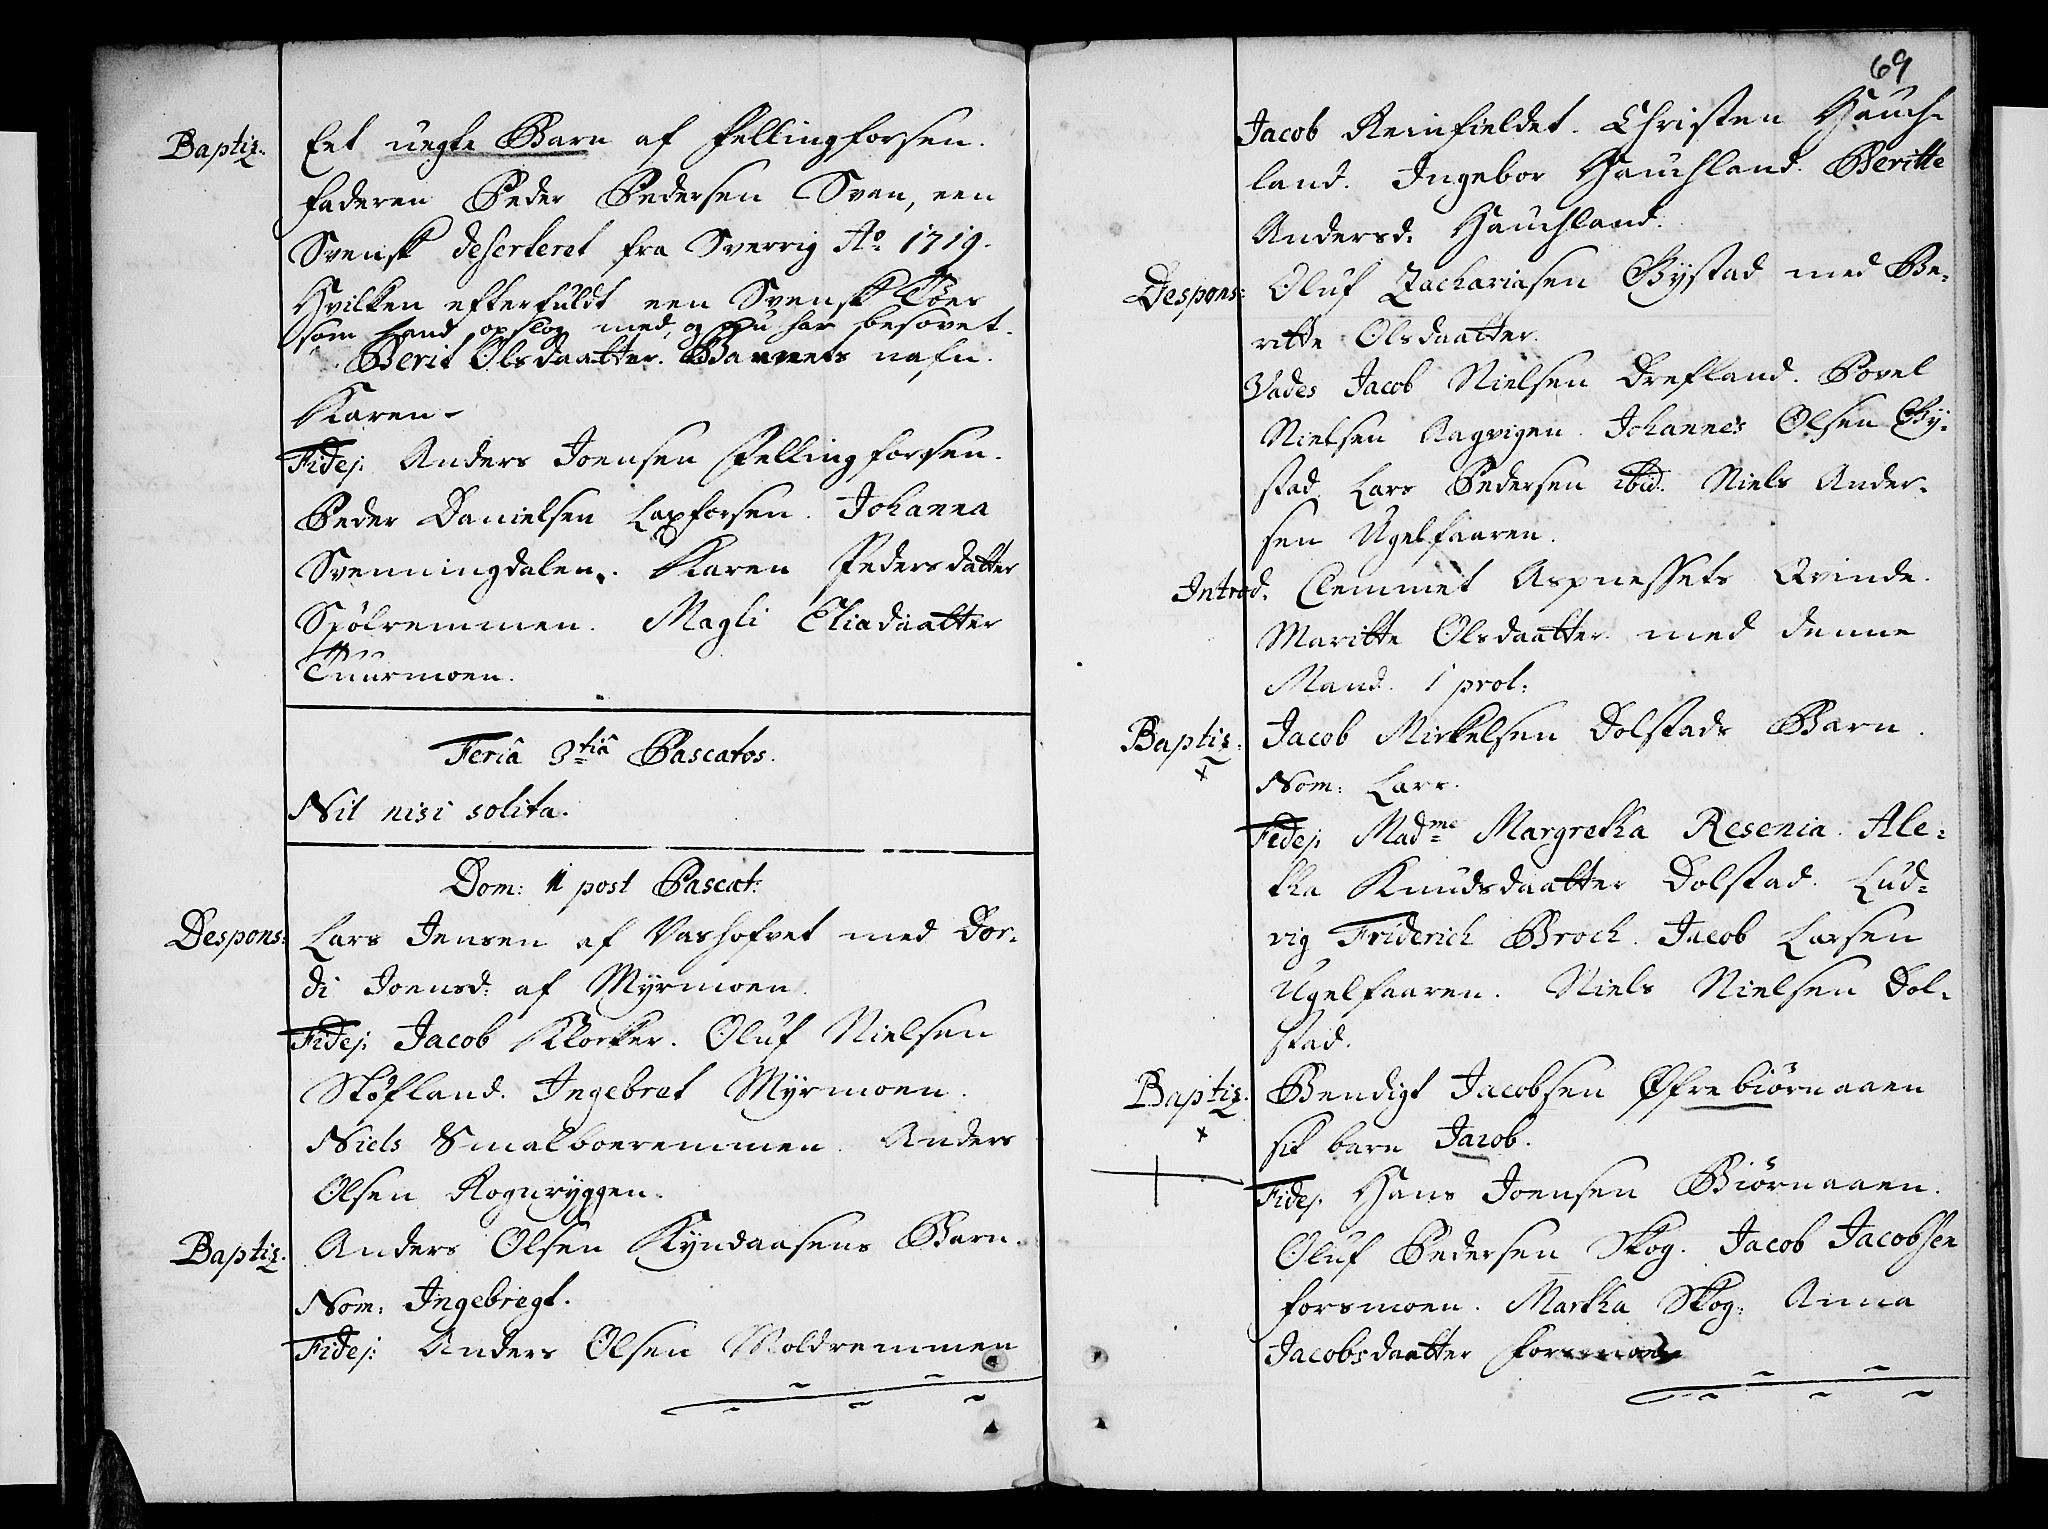 Baptiz. Eet uegte Barn af Fellingforsen.
Faderen Peder Pedersen Sven, een
Svensk deserteret fra Sverrig Ao 1719.
Hvilken efterfuldt een Svensk Tøes
som hand opslog med, og nu har besovet.
Berit Olsdaatter. Barnets nafn.
Karen.
Fidej: Anders Joensen Fellingforsen.
Peder Danielsen Laxforsen. Johanna
Svenningdalen. Karen Pedersdatter
Spølremmen. Magli Eliadaatter
Tuurmoen.
Feriâ 3tiâ Pascatos.
Nil nisi solita.
Dom: 1 post Pascat:
Despons: Lars Jensen af Vashofvet med Dor-
di Joensd: af Myrmoen.
Fidej: Jacob Klocker. Oluf Nielsen
Støfland. Ingebret Myrmoen.
Niels Smalboeremmen. Anders
Olsen Rognryggen.
Baptiz. Anders Olsen Kyndaasens Barn.
Nom: Ingebregt.
Fidej: Anders Olsen Moldremmen
69
Jacob Reinfieldet. Christen Hauch-
land. Ingebor Hauchland. Beritte
Andersd: Hauchland.
Despons: Oluf Zachariasen Bystad med Be-
ritte Olsdaatter.
Vades Jacob Nielsen Drefland. Povel
Nielsen Aagvigen. Johannes Olsen By-
stad. Lars Pedersen ibid. Niels Ander-
sen Ugelfaaren.
Introd. Clemmet Aspnessets Qvinde.
Maritte Olsdaatter med denne
Mand. 1 prol:
Baptiz. Jacob Mickelsen Dolstads Barn.
x Nom: Lars.
Fidej: Madme Margretha Resenia. Ale-
tha Knudsdaatter Dolstad. Lud-
vig Friderich Broch. Jacob Larsen
Ugelfaaren. Niels Nielsen Dol-
stad.
Baptiz. Bendigt Jacobsen Øfrebiørnaaen
x sit barn Jacob.
Fidej. Hans Joensen Biørnaaen.
Oluf Pedersen Skog. Jacob Jacobsen
Forsmoen. Martha Skog: Anna
Jacobsdaatter Forsmoen